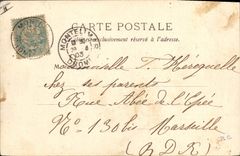 CARTE POSTALE
exclusivement réservé à l'adresse.
MONTÉLIMAR
DROME
M oiselle T. Héreguelle
chez ses parents
Rue Abée de l'Épée
No 130 bis Marseille
(B D R)